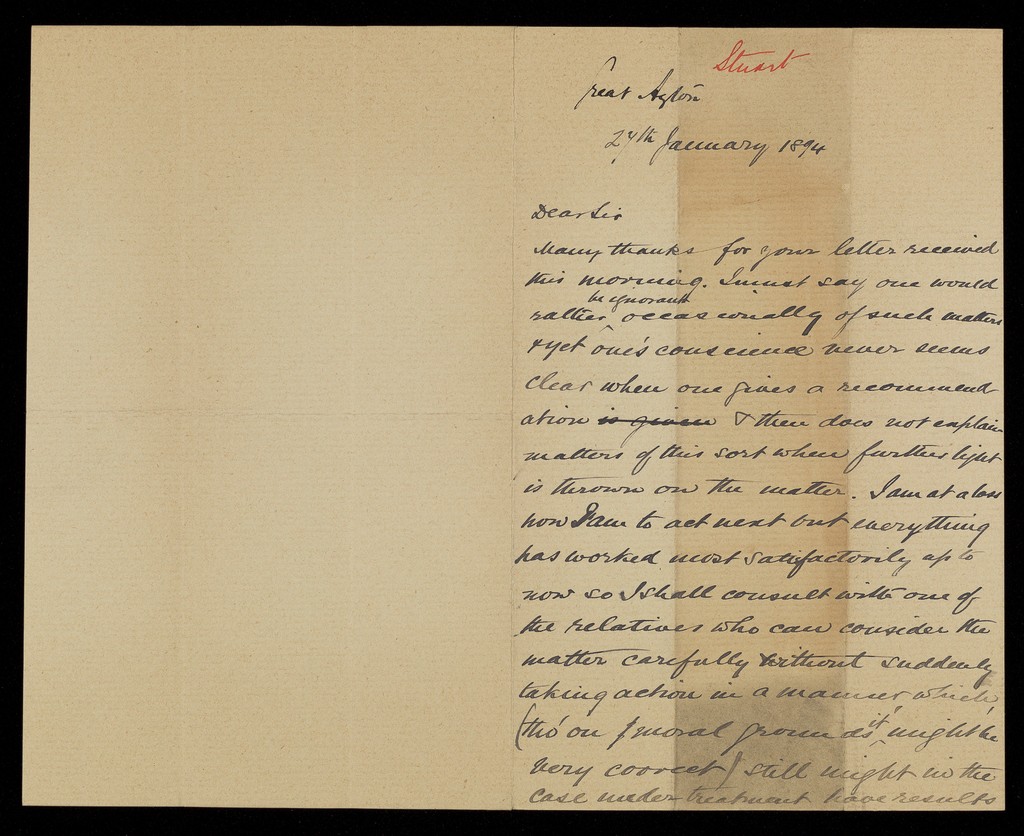 Stuart
Great Ayton
24th January 1894
Dear Sir
Many thanks for your letter received
this morning. I must say one would
be ignorant
rather occasionally of such matters
& yet one's conscience never seems
clear when one gives a recommend
ation is given & then does not explain
matters of this sort when further light
is thrown on the matter. I am at a loss
how I am to act next but everything
has worked most satisfactorily up to
now so I shall consult with one of
the relatives who can consider the
matter carefully without suddenly
taking action in a manner which,
(tho' on moral grounds it might be
very correct) still might in the
case under treatment have results